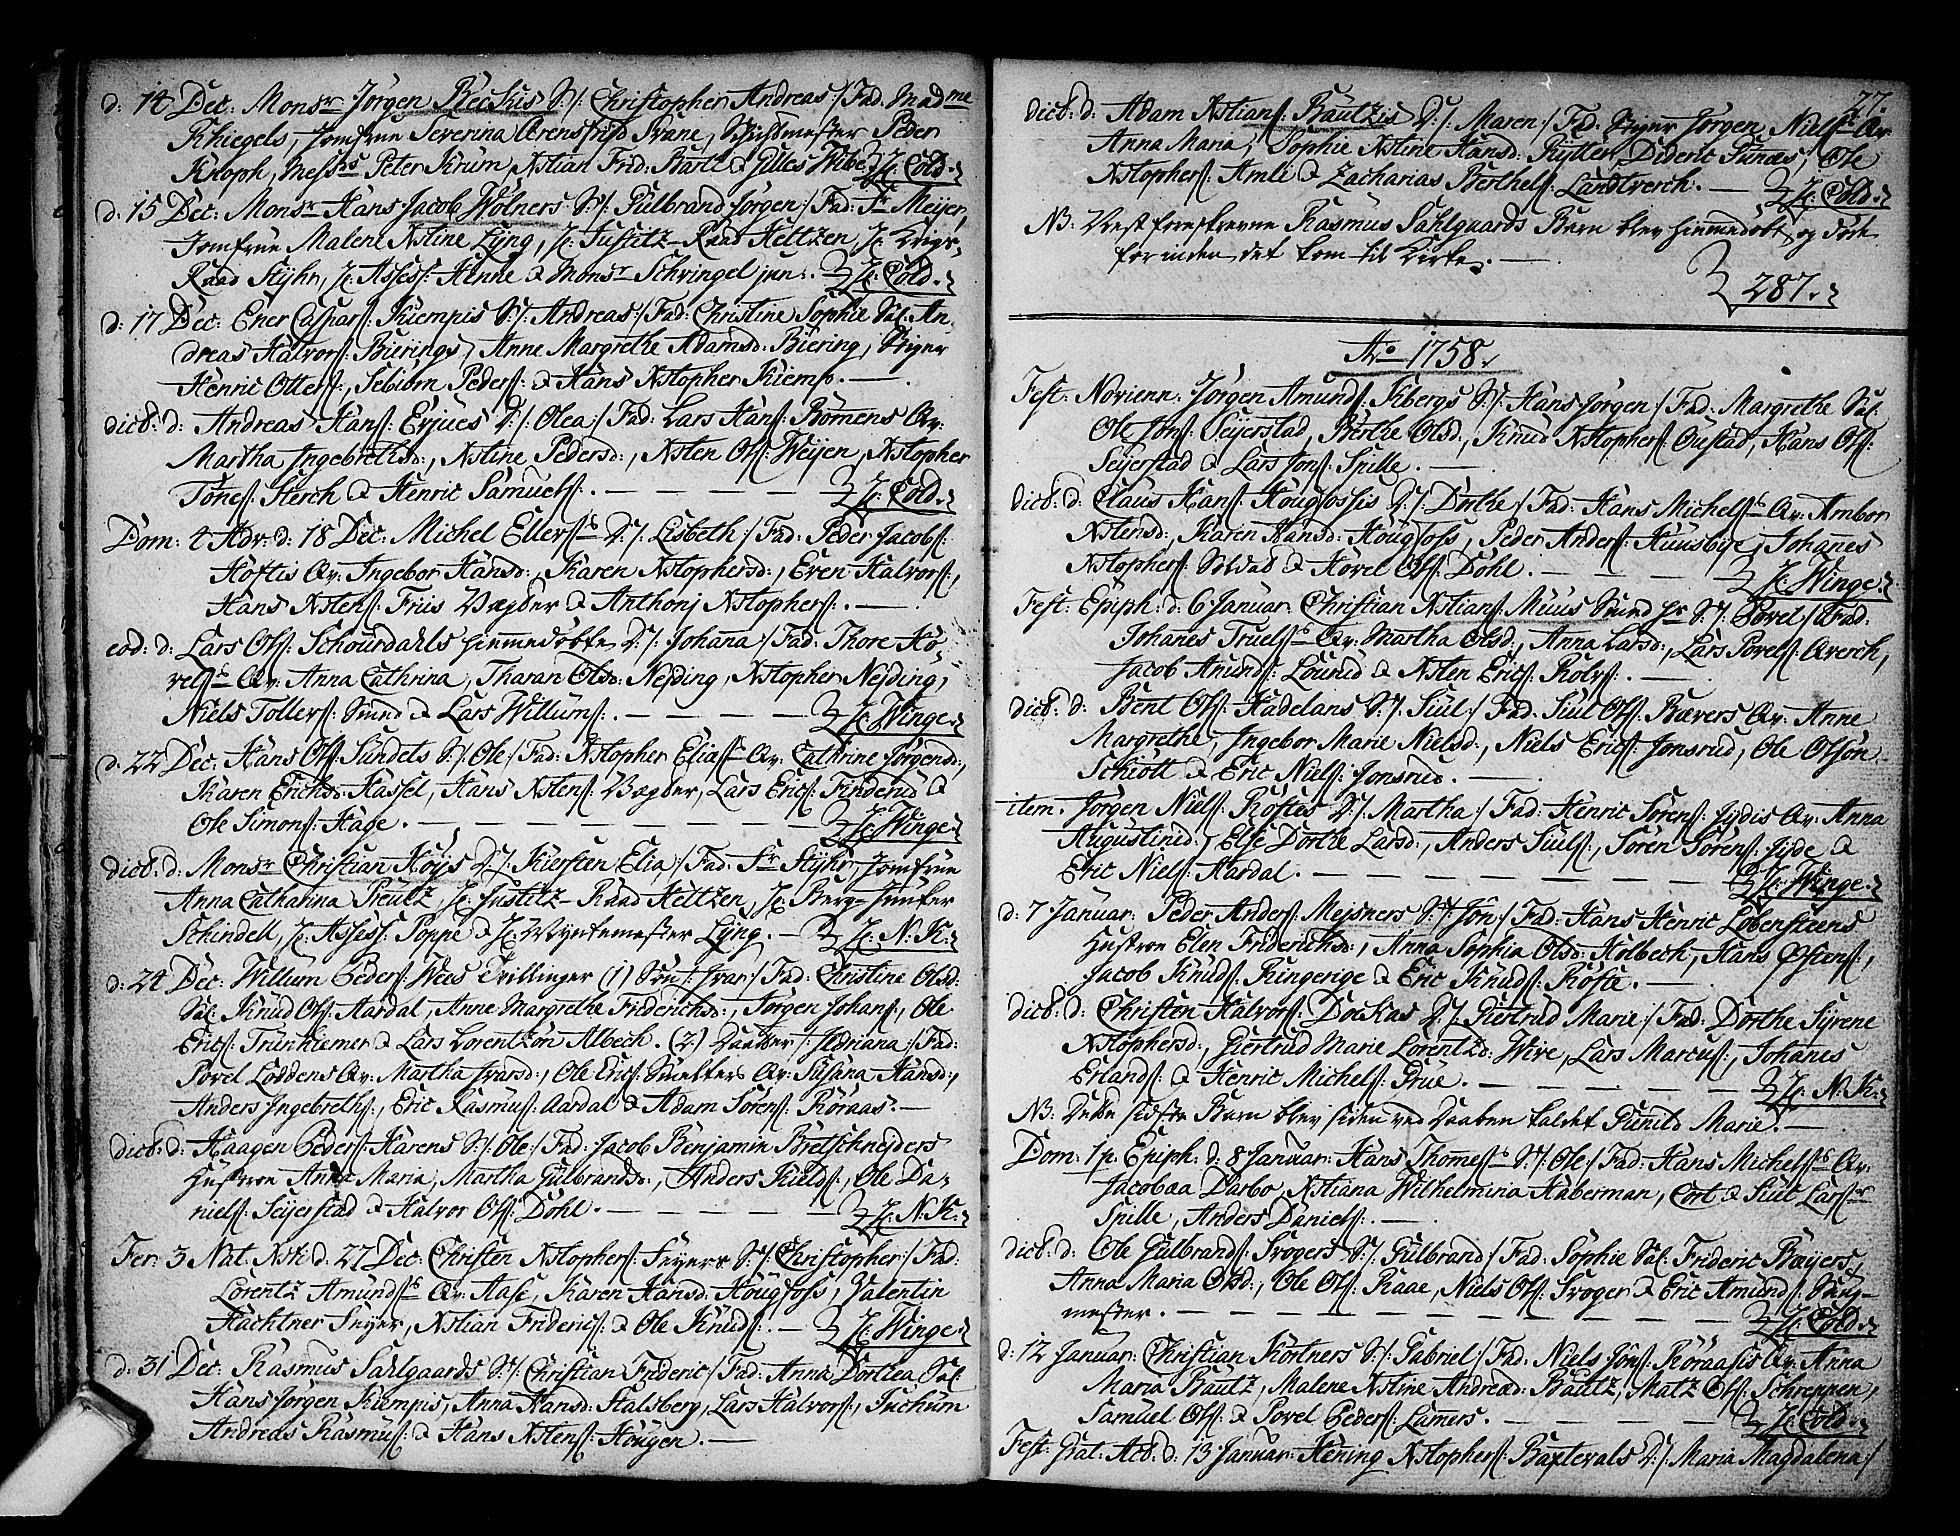 d: 14 Dec: Monsr Jörgen Beckis S:/: Christopher Andreas:/ Fad: Madme
Khiegels, Jomfrue Severina Arensfrijd Svane, Hytmester Peder
Knoph, Messrs Peter Krum, Nstian Frid: Barte & Gilles Wibe H: Cold.
d: 15 Dec: Monsr Hans Jacob Wölners S:/: Gulbrand Jörgen:/ Fad: Fr Meijer,
Jomfrue Malene Nstine Lÿng, H: Justitz-Raad Heltzen, H: Krigs-
Raad Stÿhr, H: Assess: Henne & Monsr Schringel jun:. H: Cold.
d: 17 Dec: Ener Caspars: Kiempis S:/: Andreas:/ Fad: Christine Sophie Sal: An-
dreas Halvors: Bierings, Anne Margrethe Adamsd: Biering, Stiger
Henric Otters:, Sebiörn Peders: & Hans Nstopher Kiemp.
dict: d: Andreas Hans: Erjues D:/: Olea:/ Fad: Lars Hans: Römens Qv:
Martha Ingebrethsd:, Nstine Pedersd:, Nsten Ols: Weÿen, Nstopher
Tönes: Sterch & Henric Samuels:. H: Cold.
Dom: 4 Adv: d: 18 Dec: Michel Ellers: D:/: Lisbeth:/ Fad: Peder Jacobs:
Höftis Qv: Ingebor Hansd:, Karen Nstophersd:, Even Halvors:,
Hans Nstens: Friis Vægder & Anthonj Nstophers:.
eod: d: Lars Ols: Schourdahls hiemmedöbte D:/: Johana:/ Fad: Thore Hö-
vels: Qv: Anna Cathrina, Tharan Olsd: Nesding, Nstopher Nesding,
Niels Tollers: Smed & Lars Willums:. H: Winge.
d: 22 Dec: Hans Ols: Sundets S:/: Ole:/ Fad: Nstopher Elias: Qv: Cathrine Jörgensd:,
Karen Erichsd: Hassel, Hans Nstens: Vægder, Lars Erics: Finderud &
Ole Simons: Hage. H: Winge.
dict: d: Monsr Christian Höÿs D:/: Kiersten Elia:/ Fad: Fr Stÿhr, Jomfrue
Anna Catharina Preutz, H: Justitz-Raad Heltzen, H: Berg-Junker
Schindell, H: Assess: Poppe & H: Myntemester Lÿng. H: N: K:
d: 24 Dec: Willum Peders: Wees Tvillinger (1) Sön:/: Ivar:/ Fad: Christine Olsd:
Sal: Knud Ols: Aardal, Anne Margrethe Friderichsd:, Jörgen Johans:, Ole
Erics: Trunhiemer & Lars Lorentzön Albech. (2) Daatter:/: Adriana:/ Fad:
Povel Loddens Qv: Martha Ivarsd:, Ole Erics: Smelters Qv: Susana Hansd:,
Anders Ingebreths:, Eric Rasmus: Aardal & Adam Sörens: Röraas.
dict: d: Haagen Peders: Harens S:/: Ole:/ Fad: Jacob Benjamin Bretschneÿders
Hustroe Anna Maria, Martha Gulbrandsd:, Anders Kields:, Ole Da-
niels: Seÿerstad & Halvor Ols: Döhl. H: N: K:
Fer: 3 Nat: Nsti: d: 27 Dec: Christen Nstophers: Feÿers S:/: Christopher:/ Fad:
Lorentz Amunds: Qv: Aase, Karen Hansd: Höugfoss, Valentin
Hachtner Feÿer, Nstian Friderics: & Ole Knuds:. H: Winge.
d: 31 Dec: Rasmus Sahlgaards S:/: Christian Frideric:/ Fad: Anna Dortea Sal:
Hans Jörgen Kiempis, Anna Hansd: Stalsberg, Lars Halvors:, Tuchum
Andreas Rasmus: & Hans Nstens: Höugen.
27.
dict: d: Adam Nstians: Bautzis D:/: Maren:/ Fad: Stiger Jörgen Niels: Qv:
Anna Maria, Sophie Nstine Hansd: Rÿtter, Dideric Funæs, Ole
Nstophers: Amli & Zacharias Berthels: Landtverch. H: Cold.
NB: Næst foreskrevne Rasmus Sahlgaards Barn blev hiemmedöbt, og döde
forinden det kom til Kirke.
287.
Ao 1758.
Fest: Novi enn: Jörgen Amunds: Kibergs S:/: Hans Jörgen:/ Fad: Margrethe Sal:
Ole Jons: Seÿerstad, Berthe Olsd:, Knud Nstophers: Oustad, Hans Ols:
Seÿerstad & Lars Jons: Spille.
dict: d: Claus Hans: Höugfossis D:/: Dorthe:/ Fad: Hans Michels: Qv: Ambor
Nstensd:, Karen Hansd: Höugfoss, Peder Anders: Huusbÿe, Johanes
Nstophers: Soldat & Hovel Ols: Döhl. H: Winge.
Fest: Epiph: d: 6 Januar: Christian Nstians: Muus Smed hr S:/: Povel:/ Fad:
Johanes Truels: Qv: Martha Olsd:, Anna Larsd:, Lars Povels: Qverch,
Jacob Amunds: Lourud & Nsten Erics: Rolvs:.
dict: d: Bent Ols: Hadelans S:/: Siul:/ Fad: Siul Ols: Bævers Qv: Anne
Margrethe, Ingebor Marie Nielsd:, Niels Erics: Jonsrud, Ole Olsön
Schiött & Eric Niels: Jonsrud.
item. Jörgen Niels: Röftes D:/: Martha:/ Fad: Henric Sörens: Jÿdis Qv: Anna
Augustinid:, Else Dorthe Larsd:, Anders Siuls:, Sören Sörens: Jÿde &
Eric Niels: Aardal. H: Winge.
d: 7 Januar: Peder Anders: Meisners S:/: Jön:/ Fad: Hans Henric Lobensteens
Hustroe Elen Friderichsd:, Anna Sophia Olsd: Holbech, Hans Östens:,
Jacob Knuds: Ringerige & Eric Knuds: Röfte.
dict: d: Christen Halvors: Dockas D:/: Giertrud Marie:/ Fad: Dorthe Sÿrene
Nstophersd:, Giertrud Marie Lorentzd: Wire, Lars Marcus:, Johanes
Erlands: & Henric Michels: Grüe. H: N: K:
NB: Dette sidste Barn blev siden ved Daaben kaldet Gunild Marie.
Dom: 1 p: Epiph: d: 8 Januar: Hans Thomes: S:/: Ole:/ Fad: Hans Michels: Qv:
Jacobaa Darbo, Nstiana Wilhelmina Haberman, Cort & Siul Lars:
Spille, Anders Daniels:.
dict: d: Ole Gulbrands: Skogers S:/: Gulbrand:/ Fad: Sophie Sal: Frideric Bæÿers,
Anna Maria Olsd:, Ole Ols: Raae, Niels Ols: Skoger & Eric Amunds: Büg-
mester. H: Cold.
d: 12 Januar: Christian Körtners S:/: Gabriel:/ Fad: Niels Jöns: Röraasis Qv: Anna
Maria Bautz, Malene Nstine Andread: Bautz, Matz Ols: Schreppen,
Samuel Ols: & Povel Peders: Lamers. H: Cold.
Fest: Grat: Act: d: 13 Januar: Hening Nstophers: Baxtevals D:/: Maria Magdalena:/